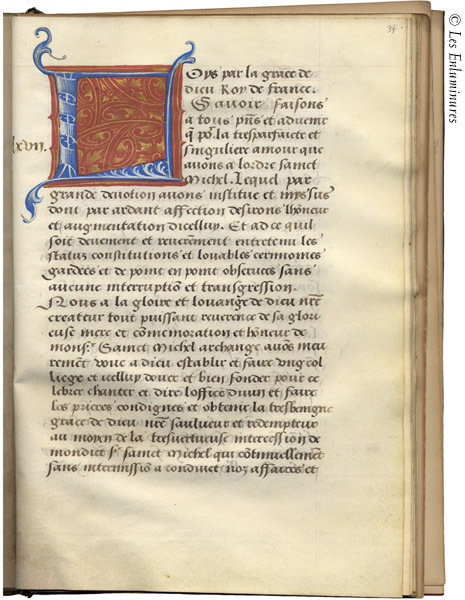 © Les Enluminures
34
Loys par la grace de
dieu Roy de france.
Sauoir faisons
a tous pñs et aduenir
q̃ po.r la tresparfaicte et
xvii.
singuliere amour que
auons a lordre sainct
Michel. Lequel par
grande deuotion auons institue et mys sus
dont par ardant affection desirons lhõneur
et augmentation dicelluy. Et ad ce quil
soit deuement et reueremẽt entretenu les
status constitutions et louables cerimonies
gardees et de point en point obseruees sans
aucune interruptiõ et transgression.
Nous a la gloire et louange de dieu nr̃e
createur tout puissant reuerence de sa glori
euse mere et cõmemoration et hõneur de
mons.r Sainct Michel archange auõs meu
rement voue a dieu establir et faire vng col
liege et icelluy douer et bien fonder pour ce
lebrer chanter et dire loffice diuin et faire
les prieres condignes et obtenir la tresbenigne
grace de dieu nr̃e saulueur et redempteur
au moyen de la tresuertueuse intercession de
mondict s.r sainct Michel qui cõtinuellemẽt
sans intermissiõ a conduict noz affaires et